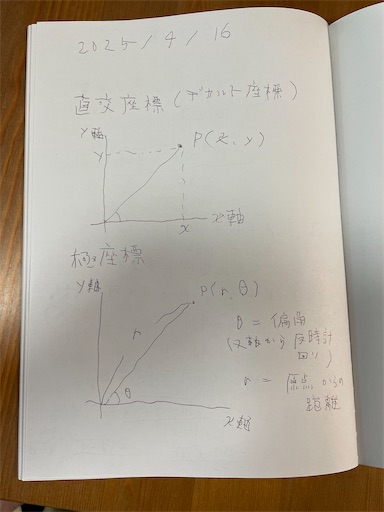 2025/4/16
直交座標(デカルト座標)
y軸
y
P(x, y)
x
x軸
極座標
y軸
P(r, θ)
r
θ
x軸
θ = 偏角
(x軸から反時計
回り)
r = 原点からの
距離